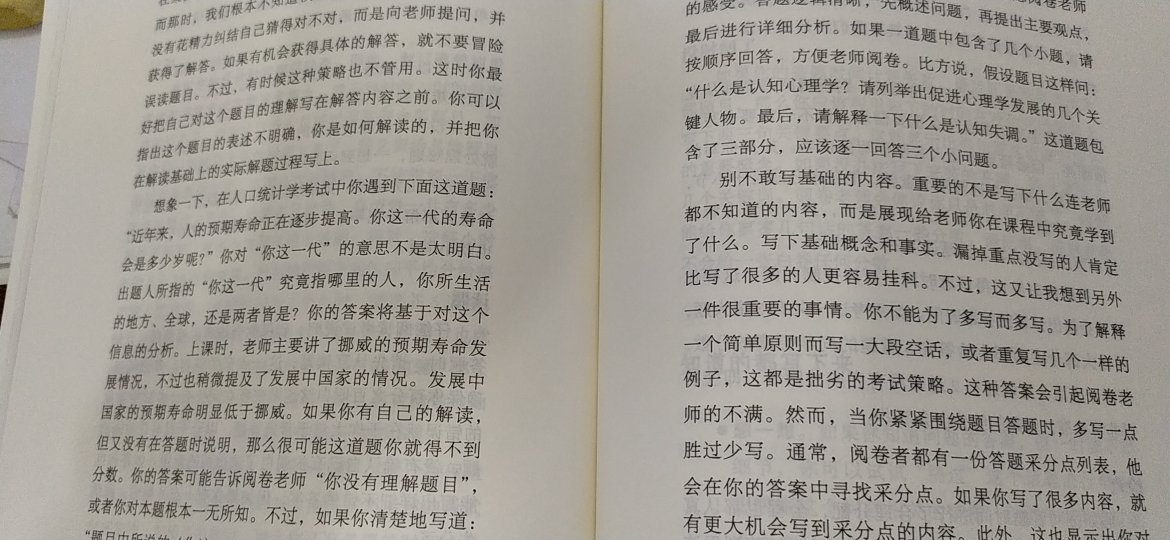 而那时，我们根本不知道
没有花精力纠结自己猜得对不对，而是向老师提问，并
获得了解答。如果有机会获得具体的解答，就不要冒险
误读题目。不过，有时候这种策略也不管用。这时你最
好把自己对这个题目的理解写在解答内容之前。你可以
指出这个题目的表述不明确，你是如何解读的，并把你
在解读基础上的实际解题过程写上。
想象一下，在人口统计学考试中你遇到下面这道题：
“近年来，人的预期寿命正在逐步提高。你这一代的寿命
会是多少岁呢？”你对“你这一代”的意思不是太明白。
出题人所指的“你这一代”究竟指哪里的人，你所生活
的地方、全球，还是两者皆是？你的答案将基于对这个
信息的分析。上课时，老师主要讲了挪威的预期寿命发
展情况，不过也稍微提及了发展中国家的情况。发展中
国家的预期寿命明显低于挪威。如果你有自己的解读，
但又没有在答题时说明，那么很可能这道题你就得不到
分数。你的答案可能告诉阅卷老师“你没有理解题目”，
或者你对本题根本一无所知。不过，如果你清楚地写道：
阅卷老师
的感受。答题逻辑清晰，先概述问题，再提出主要观点，
最后进行详细分析。如果一道题中包含了几个小题，请
按顺序回答，方便老师阅卷。比方说，假设题目这样问：
“什么是认知心理学？请列举出促进心理学发展的几个关
键人物。最后，请解释一下什么是认知失调。”这道题包
含了三部分，应该逐一回答三个小问题。
别不敢写基础的内容。重要的不是写下什么连老师
都不知道的内容，而是展现给老师你在课程中究竟学到
了什么。写下基础概念和事实。漏掉重点没写的人肯定
比写了很多的人更容易挂科。不过，这又让我想到另外
一件很重要的事情。你不能为了多写而多写。为了解释
一个简单原则而写一大段空话，或者重复写几个一样的
例子，这都是拙劣的考试策略。这种答案会引起阅卷老
师的不满。然而，当你紧紧围绕题目答题时，多写一点
胜过少写。通常，阅卷者都有一份答题采分点列表，他
会在你的答案中寻找采分点。如果你写了很多内容，就
有更大机会写到采分点的内容。此外，这也显示出你对